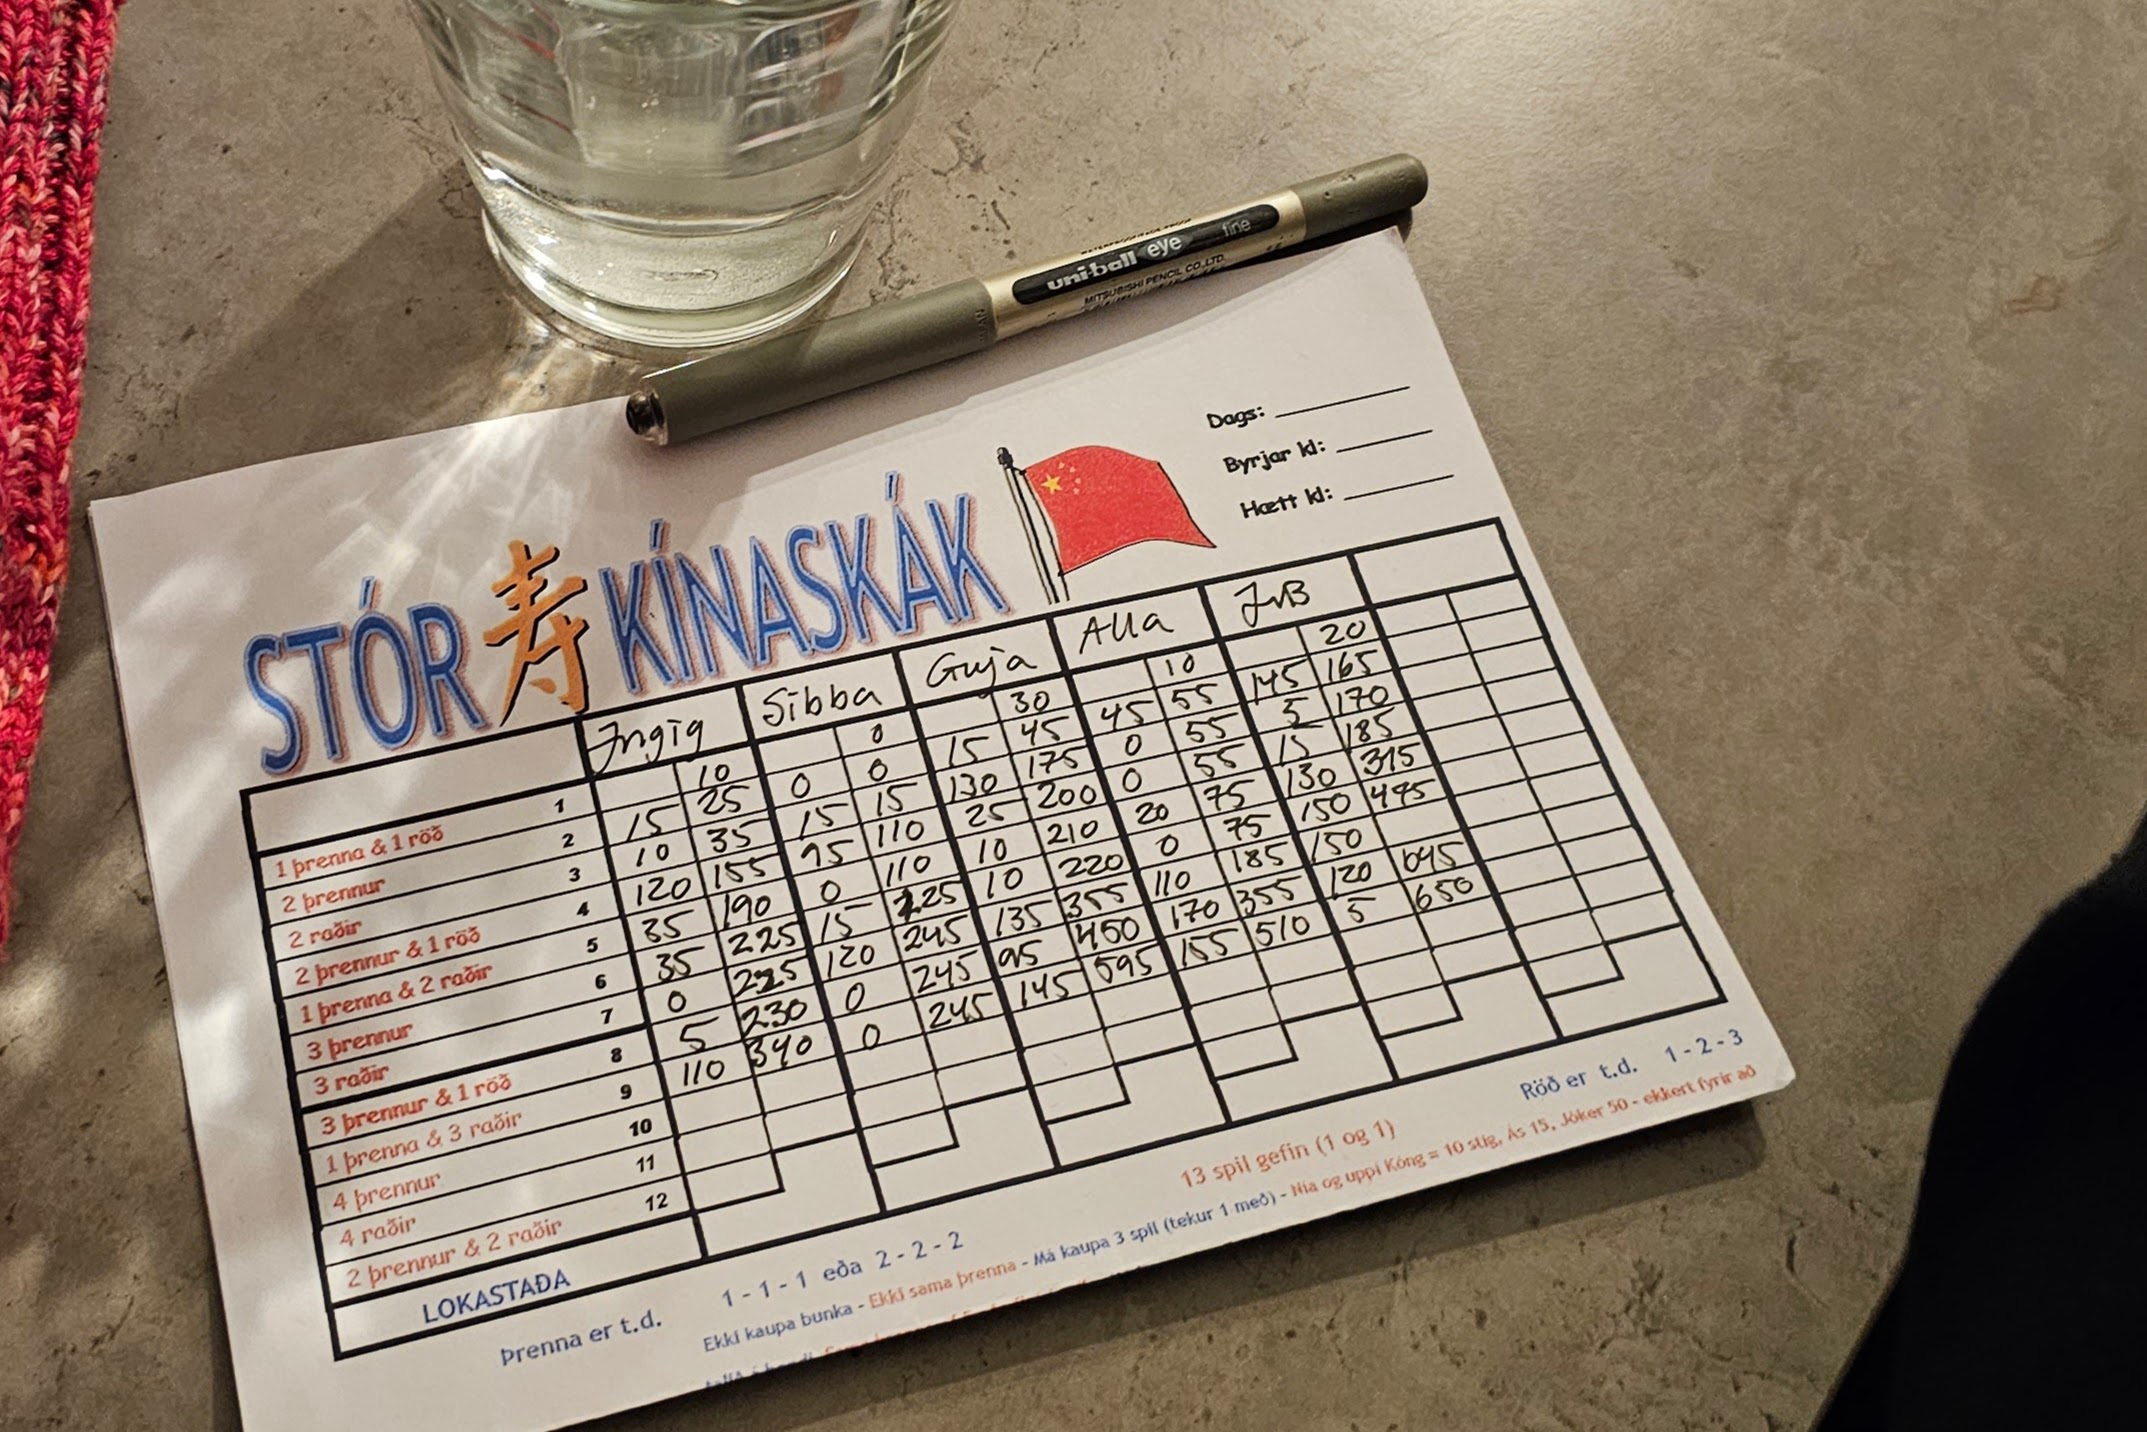 uni-ball eye fine
MITSUBISHI PENCIL CO.,LTD.
Dags:
Byrjar kl:
Hætt kl:
STÓR 寿 KÍNASKÁK
Ingig Sibba Guja Alla JvB
1 þrenna & 1 röð 1 10 0 30 10 20
2 þrennur 2 15 25 0 0 15 45 45 55 145 165
2 raðir 3 10 35 15 15 130 175 0 55 5 170
2 þrennur & 1 röð 4 120 155 95 110 25 200 0 55 15 185
1 þrenna & 2 raðir 5 35 190 0 110 10 210 20 75 130 315
3 þrennur 6 35 225 15 125 10 220 0 75 150 495
3 raðir 7 0 225 120 245 135 355 110 185 150
3 þrennur & 1 röð 8 5 230 0 245 95 450 170 355 120 645
1 þrenna & 3 raðir 9 110 340 0 245 145 595 155 510 5 650
4 þrennur 10
4 raðir 11
2 þrennur & 2 raðir 12
LOKASTAÐA
Þrenna er t.d. 1 - 1 - 1 eða 2 - 2 - 2 13 spil gefin (1 og 1) Röð er t.d. 1 - 2 - 3
Ekki kaupa bunka - Ekki sama þrenna - Má kaupa 3 spil (tekur 1 með) - Nía og uppí Kóng = 10 stig, Ás 15, Jóker 50 - ekkert fyrir að